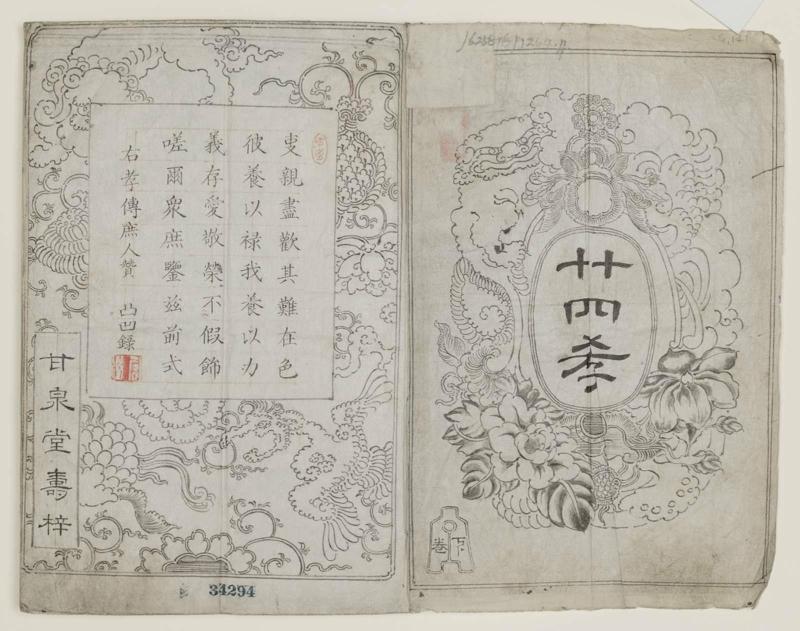 廿四孝
下卷
叓親盡歡其難在色
彼養以禄我養以力
義存愛敬榮不假飾
嗟爾衆庶鑒兹前式
右孝傳庶人贊 凸凹録
甘泉堂壽梓
34294